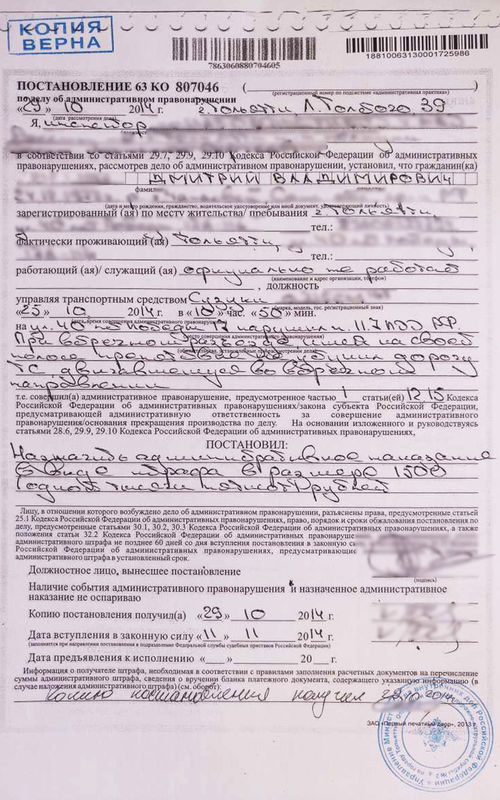 КОПИЯ
ВЕРНА
7863060880704605
18810063130001725986
ПОСТАНОВЛЕНИЕ 63 КО 807046
(регистрационный номер по подсистеме «административная практика»)
по делу об административном правонарушении
«29» 10 2014 г. г. Тольятти, Л. Толстого, 39
(дата рассмотрения дела)
Я, инспектор
в соответствии со статьями 29.7, 29.9, 29.10 Кодекса Российской Федерации об административных
правонарушениях, рассмотрев дело об административном правонарушении, установил, что гражданин(ка)
ДМИТРИЙ ВЛАДИМИРОВИЧ
(дата и место рождения, гражданство, водительское удостоверение или иной документ, удостоверяющий личность)
зарегистрированный (ая) по месту жительства/ пребывания г. Тольятти,
тел.:
фактически проживающий (ая) г. Тольятти,
тел.:
работающий (ая)/ служащий (ая) официально не работает
(наименование и адрес организации, телефон)
, должность
управляя транспортным средством Сузуки
(марка, модель, гос. регистрационный знак)
«25» 10 2014 г. в «10» час. «50» мин.
на ул. 40 лет Победы 17 нарушил п. 11.7 ПДД РФ
При встречном разъезде имея на своей
полосе препятствие не уступил дорогу
ТС, двигавшемуся во встречном
направлении
т.е. совершил(а) административное правонарушение, предусмотренное частью 1 статьи(ей) 12.15 Кодекса
Российской Федерации об административных правонарушениях/закона субъекта Российской Федерации,
предусматривающей административную ответственность за совершение административного
правонарушения/основания прекращения производства по делу. На основании изложенного и руководствуясь
статьями 28.6, 29.9, 29.10 Кодекса Российской Федерации об административных правонарушениях,
ПОСТАНОВИЛ:
Назначить административное наказание
в виде штрафа в размере 1500
(одной тысячи пятисот) рублей
Лицу, в отношении которого возбуждено дело об административном правонарушении, разъяснены права, предусмотренные статьей
25.1 Кодекса Российской Федерации об административных правонарушениях, право, порядок и сроки обжалования постановления по
делу, предусмотренные статьями 30.1, 30.2, 30.3 Кодекса Российской Федерации об административных правонарушениях, а также
положения статьи 32.2 Кодекса Российской Федерации об административных
административного штрафа не позднее 60 дней со дня вступления постановления в законную
Российской Федерации об административных правонарушениях, предусматривающие
административного штрафа в установленный срок.
Должностное лицо, вынесшее постановление
(подпись)
Наличие события административного правонарушения и назначенное административное
наказание не оспариваю
Копию постановления получил(а) «29» 10 2014 г.
Дата вступления в законную силу «11» 11 2014 г.
(заполняется при направлении постановления в подразделения Федеральной службы судебных приставов Российской Федерации)
Дата предъявления к исполнению « » 20 г.
Информация о получателе штрафа, необходимая в соответствии с правилами заполнения расчетных документов на перечисление
суммы административного штрафа, сведения о вручении бланка платежного документа, содержащего указанную информацию (в
случае наложения административного штрафа) (см. оборот):
копию постановления получил
ЗАО «Первый печатный двор», 2013 г.